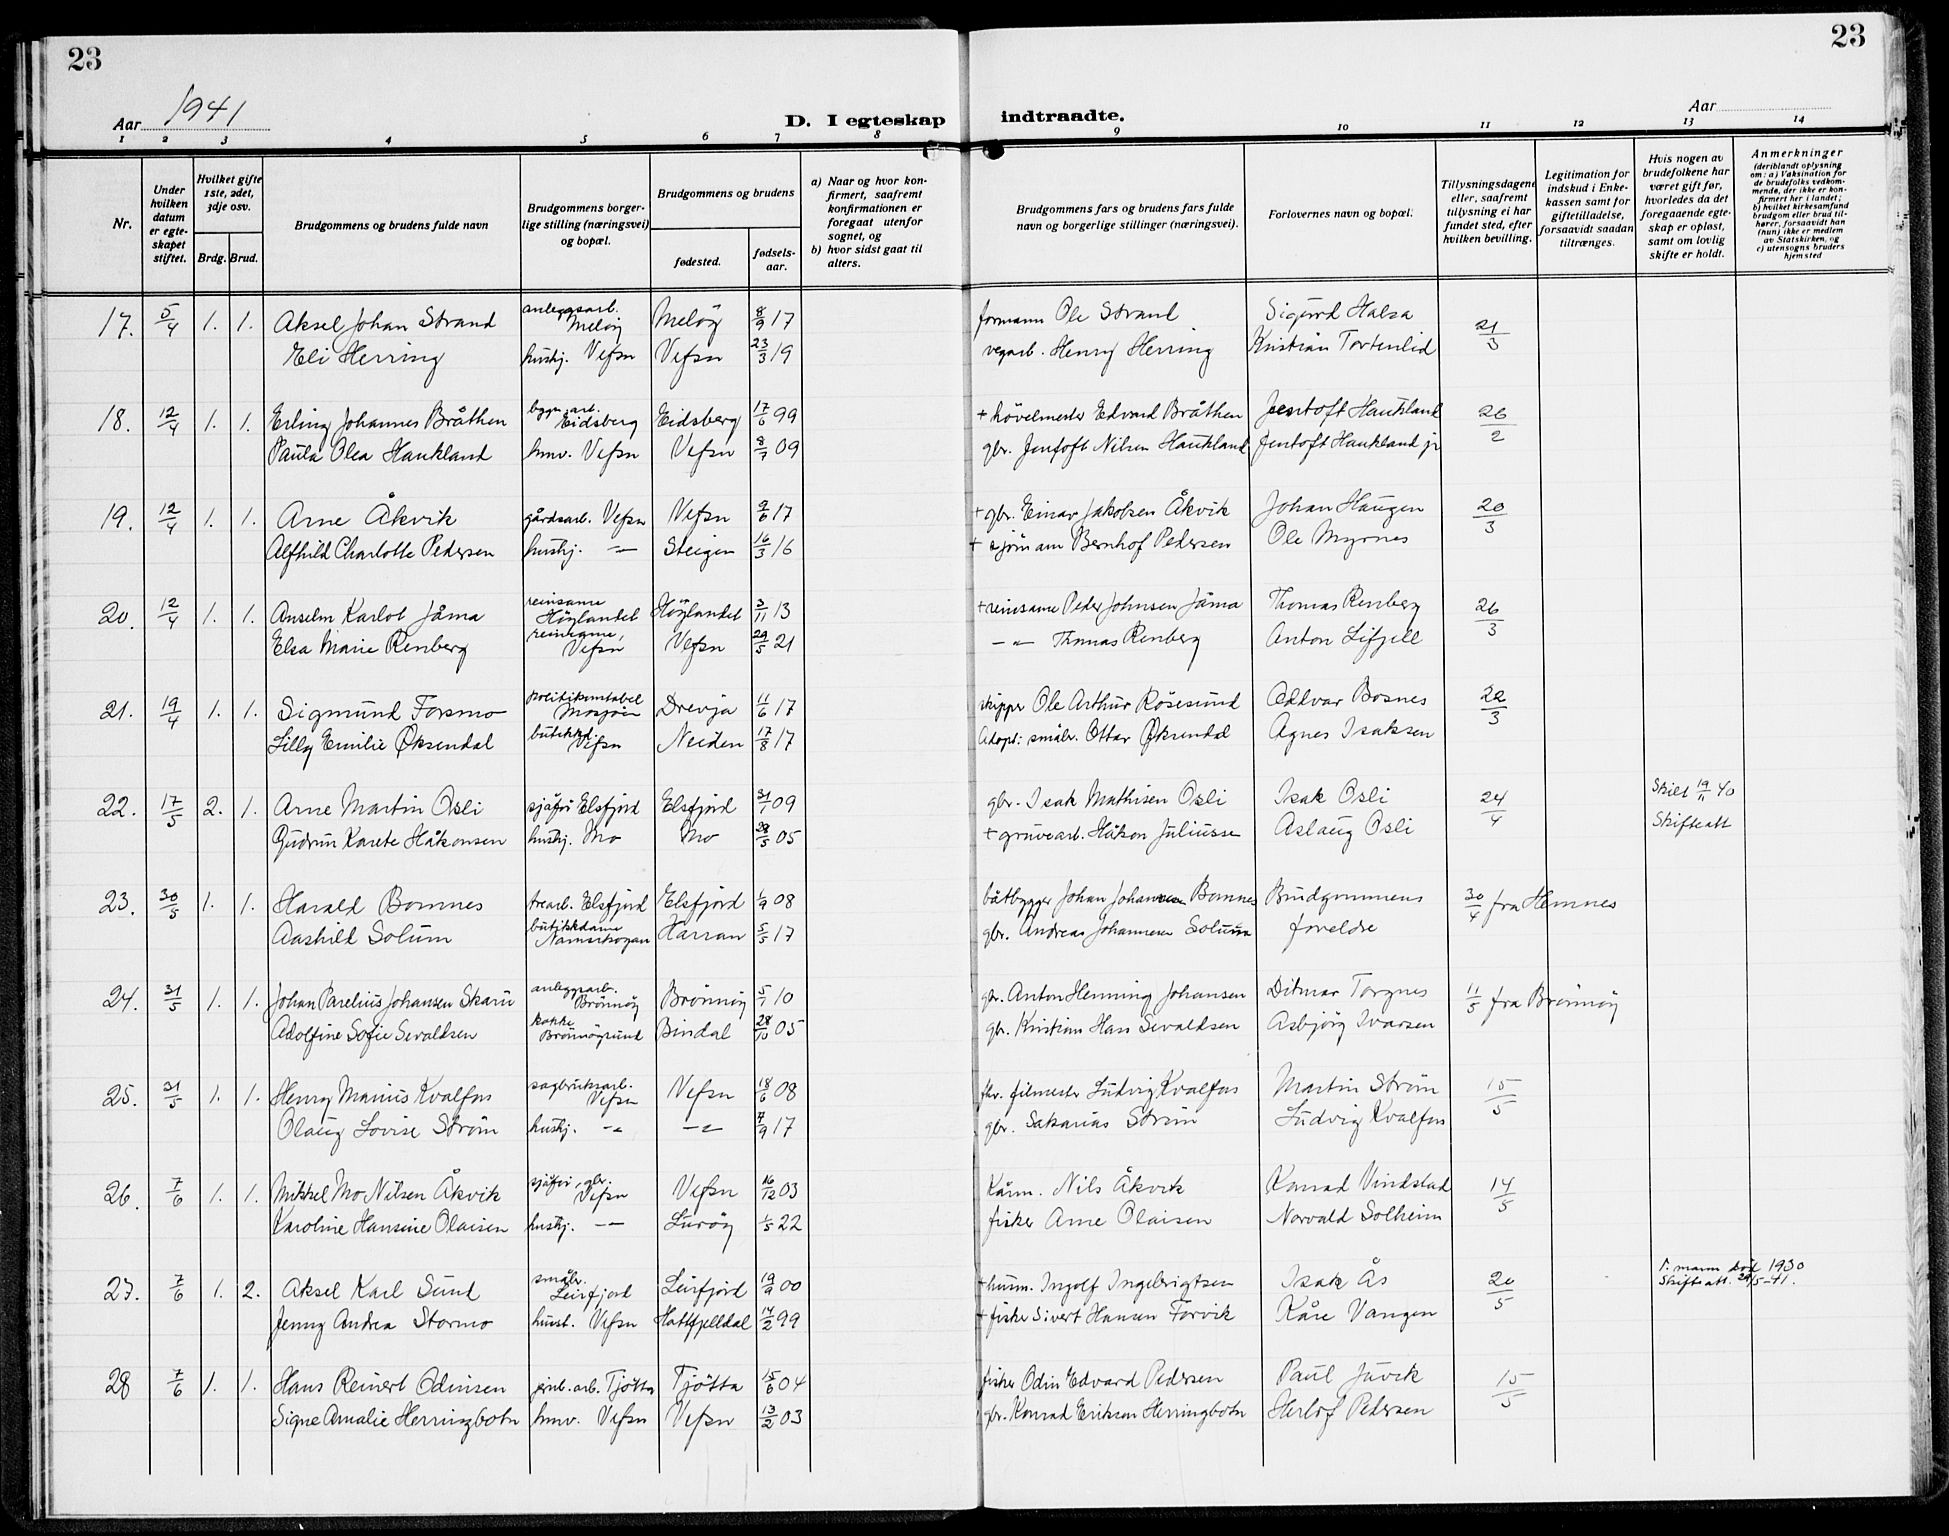 23
23
Aar 1941
D. I egteskap indtraadte.
Aar
1 2 3 4 5 6 7 8 9 10 11 12 13 14
Nr.
Under hvilken datum er egteskapet stiftet.
Hvilket gifte 1ste, 2det, 3dje osv.
Brdg. Brud.
Brudgommens og brudens fulde navn
Brudgommens borgerlige stilling (næringsvei) og bopæl.
Brudgommens og brudens
fødested.
fødselsaar.
a) Naar og hvor konfirmert, saafremt konfirmationen er foregaaet utenfor sognet, og
b) hvor sidst gaat til alters.
Brudgommens fars og brudens fars fulde navn og borgerlige stillinger (næringsvei).
Forlovernes navn og bopæl.
Tillysningsdagene eller, saafremt tillysning ei har fundet sted, efter hvilken bevilling.
Legitimation for indskud i Enkekassen samt for giftetilladelse, forsaavidt saadan tiltrænges.
Hvis nogen av brudefolkene har været gift før, hvorledes da det foregaaende egteskap er opløst, samt om lovlig skifte er holdt.
Anmerkninger (deriblandt oplysning om: a) Vaksination for de brudefolks vedkommende, der ikke er konfirmert her i landet; b) hvilket kirkesamfund brudgom eller brud tilhører, forsaavidt han (hun) ikke er medlem av Statskirken, og c) utensogns bruders hjemsted
17. 5/4 1. 1. Aksel Johan Strand anleggsarb. Meløy Meløy 8/9 17 formann Ole Strand Sigurd Halsa 21/3
Eli Herring hushj. Vefsn Vefsn 23/3 19 vegarb. Henry Herring Kristian Tortenlid
18. 12/4 1. 1. Erling Johannes Bråthen bygn.arb. Eidsberg Eidsberg 17/6 99 + høvelmester Edvard Bråthen Jentoft Haukland 26/2
Paula Olea Haukland hmv. Vefsn Vefsn 8/7 09 gbr. Jentoft Nilsen Haukland Jentoft Haukland jr
19. 12/4 1. 1. Arne Åkvik gårdsarb. Vefsn Vefsn 9/6 17 + gbr. Einar Jakobsen Åkvik Johan Haugen 20/3
Alfhild Charlotte Pedersen hushj. —"— Steigen 16/3 16 + sjømann Bernhof Pedersen Ole Myrnes
20. 12/4 1. 1. Anselm Karlot Jåma reinsame Høylandet Høylandet 3/11 13 + reinsame Peder Johnsen Jåma Thomas Renberg 26/3
Elsa Marie Renberg reinsame, Vefsn Vefsn 29/5 21 —"— Thomas Renberg Anton Lifjell
21. 19/4 1. 1. Sigmund Forsmo politikonstabel Mosjøen Drevja 11/6 17 skipper Ole Arthur Røsesund Oddvar Bosnes 22/3
Lilly Emilie Øksendal butikkd. Vefsn Neiden 17/8 17 Adopt: småbr. Ottar Øksendal Agnes Isaksen
22. 17/5 2. 1. Arne Martin Osli sjåfør Elsfjord Elsfjord 31/1 09 gbr. Isak Mathisen Osli Isak Osli 24/4 Skilt 19/11 40
Gudrun Karete Håkonsen hushj. Mo Mo 28/5 05 + gruvearb. Håkon Juliussen Aslaug Osli Skifteatt
23. 30/5 1. 1. Harald Bomnes trearb. Elsfjord Elsfjord 1/9 08 båtbygger Johan Johansen Bomnes Brudgommens 30/4 fra Hemnes
Aashild Solum butikkdame Namsskogan Harran 5/5 17 gbr. Andreas Johannesen Solum foreldre
24. 31/5 1. 1. Johan Parelius Johansen Skarn anleggsarb. Brønnøy Brønnøy 5/1 10 gbr. Anton Henning Johansen Ditmar Torgnes 11/5 fra Brønnøy
Adolfine Sofie Sevaldsen kokke Brønnøysund Bindal 28/10 05 gbr. Kristian Hans Sevaldsen Asbjørg Ivarsen
25. 31/5 1. 1. Henry Marius Kvalfors sagbruksarb. Vefsn Vefsn 18/6 08 fhv. filmester Ludvig Kvalfors Martin Strøm 15/5
Olaug Lovise Strøm hushj. —"— —"— 7/9 17 gbr. Sakarias Strøm Ludvig Kvalfors
26. 7/6 1. 1. Mikkel Mo Nilsen Åkvik sjåfør, gbr. Vefsn Vefsn 16/12 03 Kårm. Nils Åkvik Konrad Vindstad 14/5
Karoline Hansine Olaisen hushj. —"— Lurøy 1/5 22 fisker Arne Olaisen Norvald Solheim
27. 7/6 1. 2. Aksel Karl Sund småbr. Leirfjord Leirfjord 19/9 00 + husm. Ingolf Ingebrigtsen Isak Ås 20/5 1. mann død 1930
Jenny Andrea Stormo hust. Vefsn Hattfjelldal 14/2 99 + fisker Sivert Hansen Forvik Kåre Vangen Skifteatt. 29/5-41.
28 7/6 1. 1. Hans Reinert Odinsen jernb.arb. Tjøtta Tjøtta 15/6 04 fisker Odin Edvard Pedersen Paul Juvik 15/5
Signe Amalie Herringbotn hmv. Vefsn Vefsn 13/2 03 gbr. Konrad Eriksen Herringbotn Herlof Pedersen